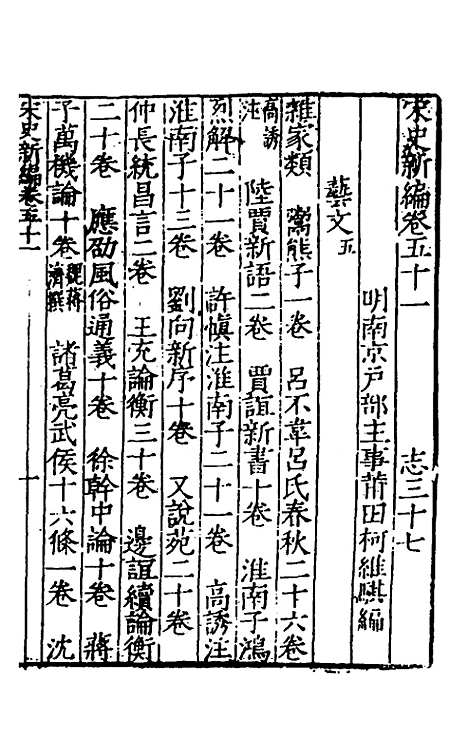 宋史新編卷五十一 志三十七
明南京戶部主事莆田柯維騏編
藝文五
雜家類 鬻熊子一卷 呂不韋呂氏春秋二十六卷
高誘注 陸賈新語二卷 賈誼新書十卷 淮南子鴻
烈解二十一卷 許慎注淮南子二十一卷 高誘注
淮南子十三卷 劉向新序十卷 又說苑二十卷
仲長統昌言二卷 王充論衡三十卷 邊誼續論衡
二十卷 應劭風俗通義十卷 徐幹中論十卷 蔣
子萬機論十卷魏蔣濟撰 諸葛亮武侯十六條一卷 沈
宋史新編卷五十一 一